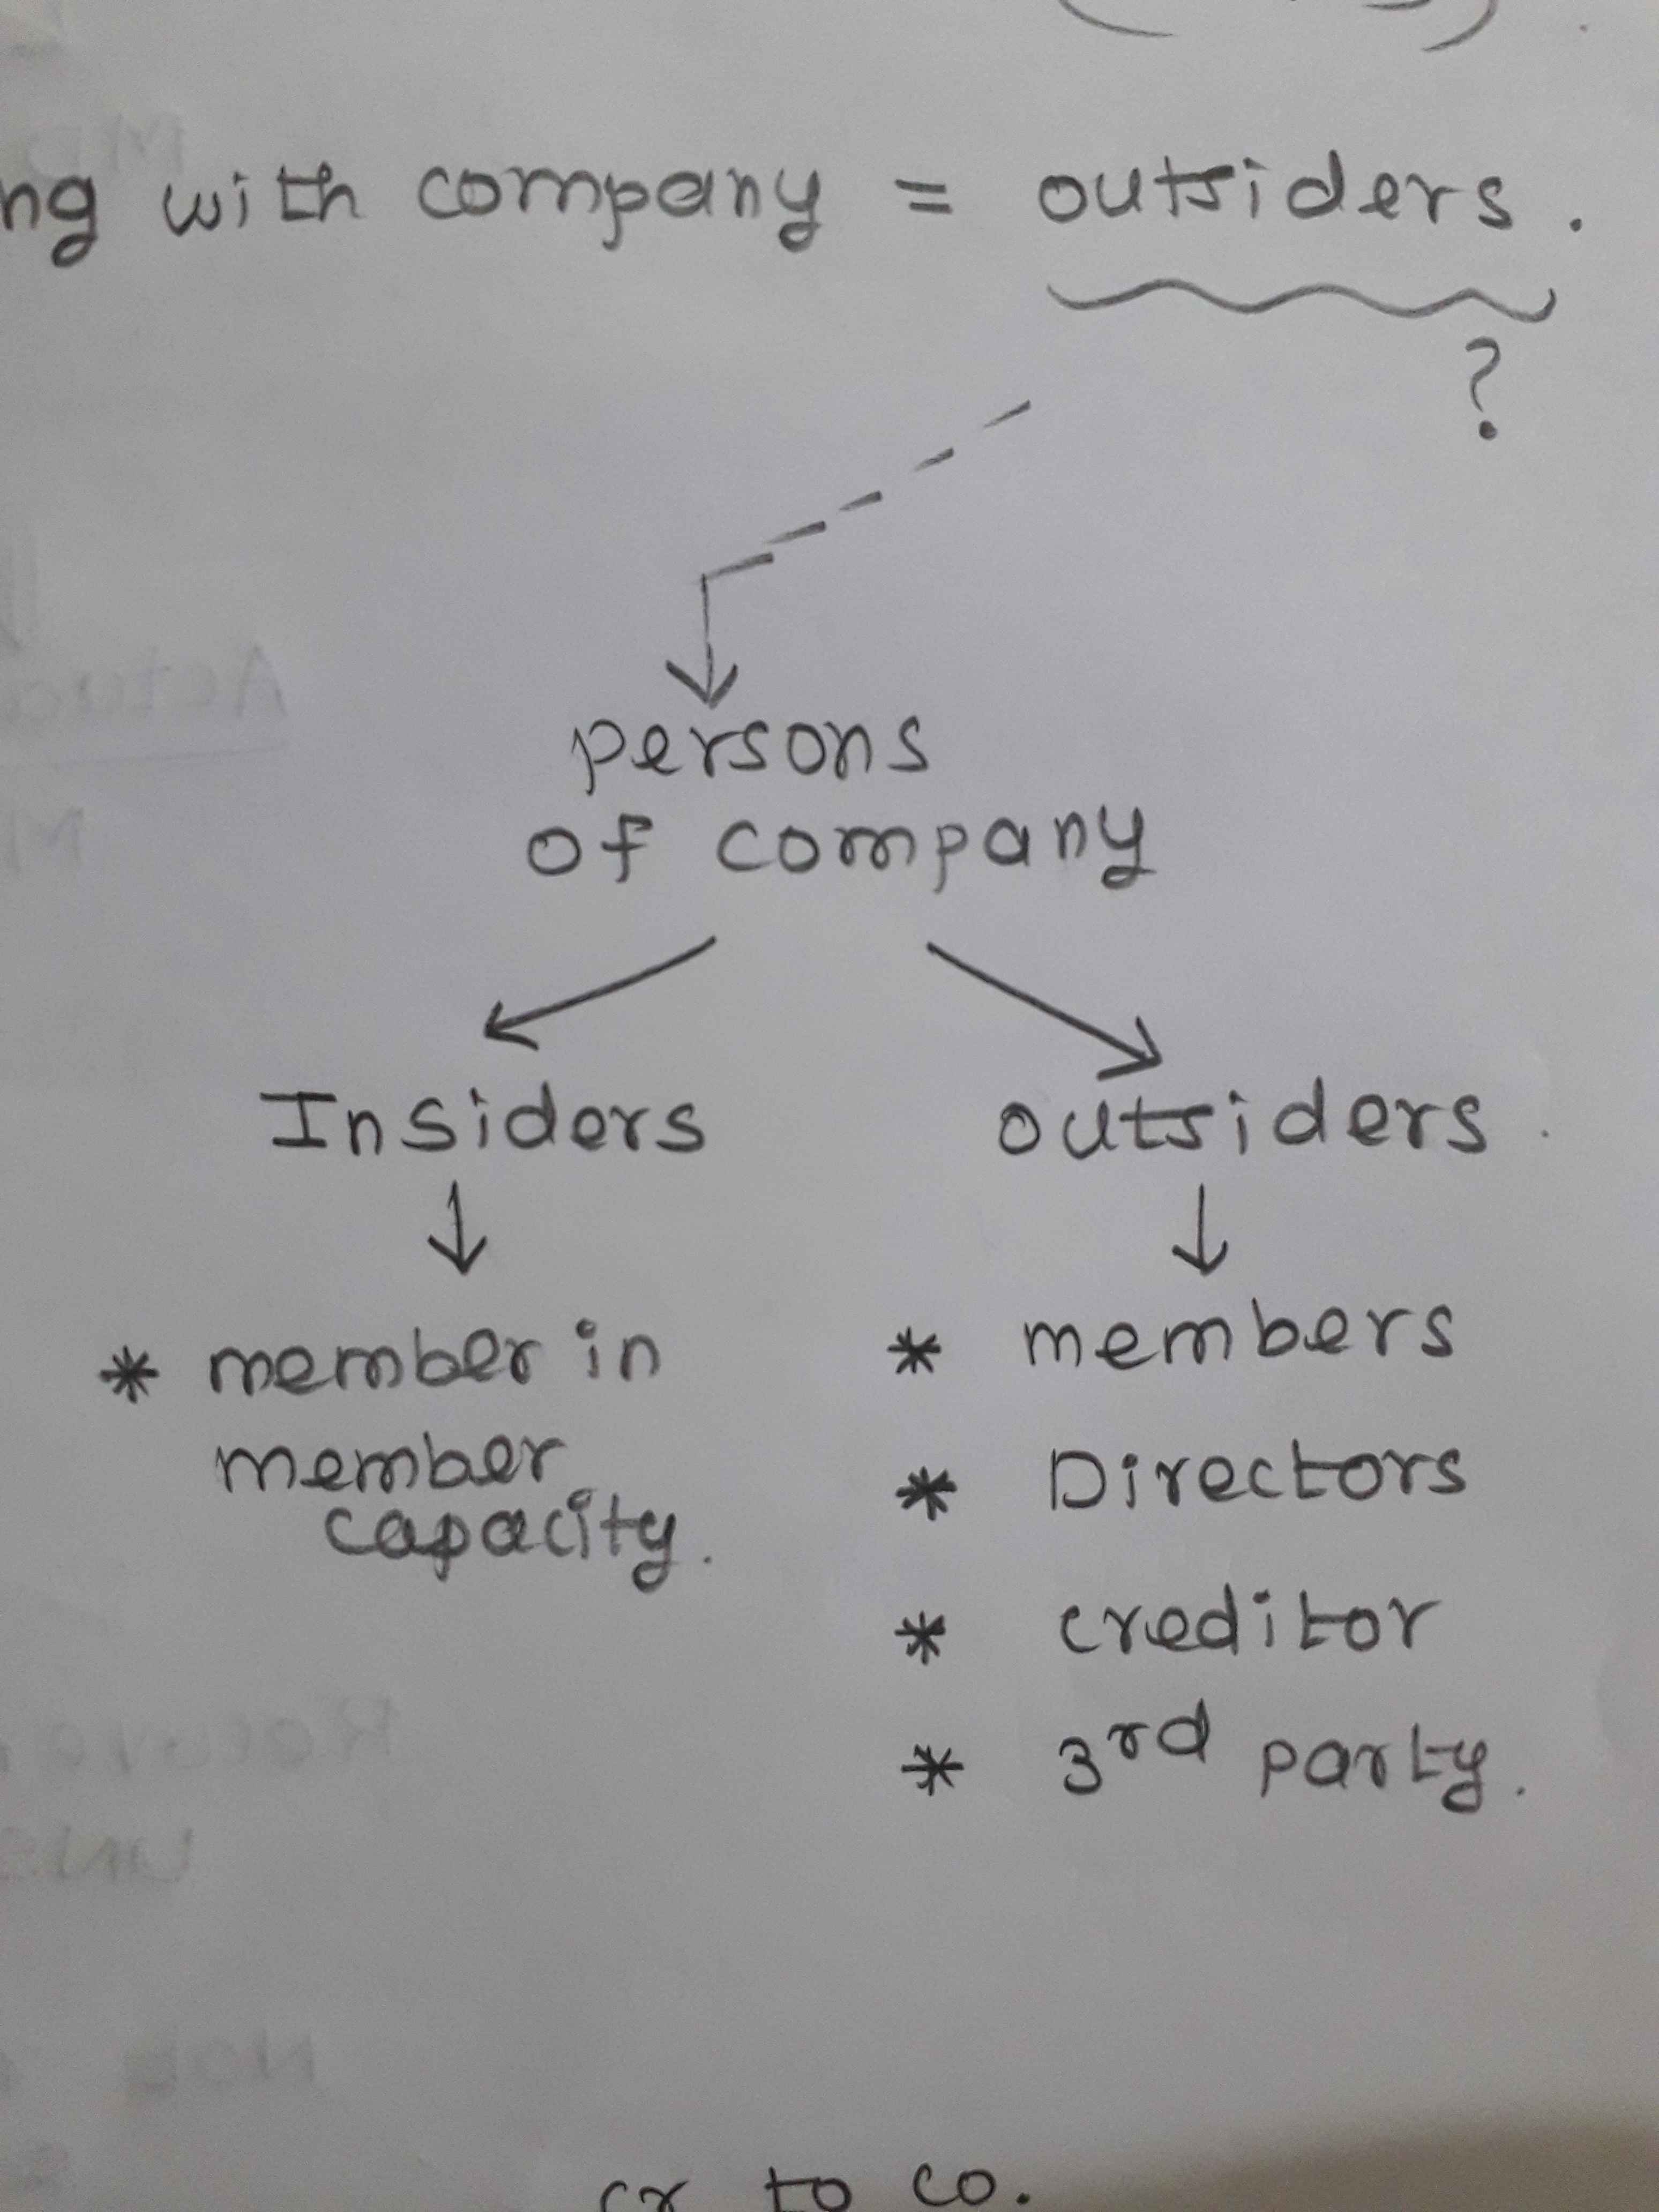 ng with company = outsiders.
?
persons
of company
Insiders
outsiders
* member in
member
capacity.
* members
* Directors
* creditor
* 3rd party.
cr to co.